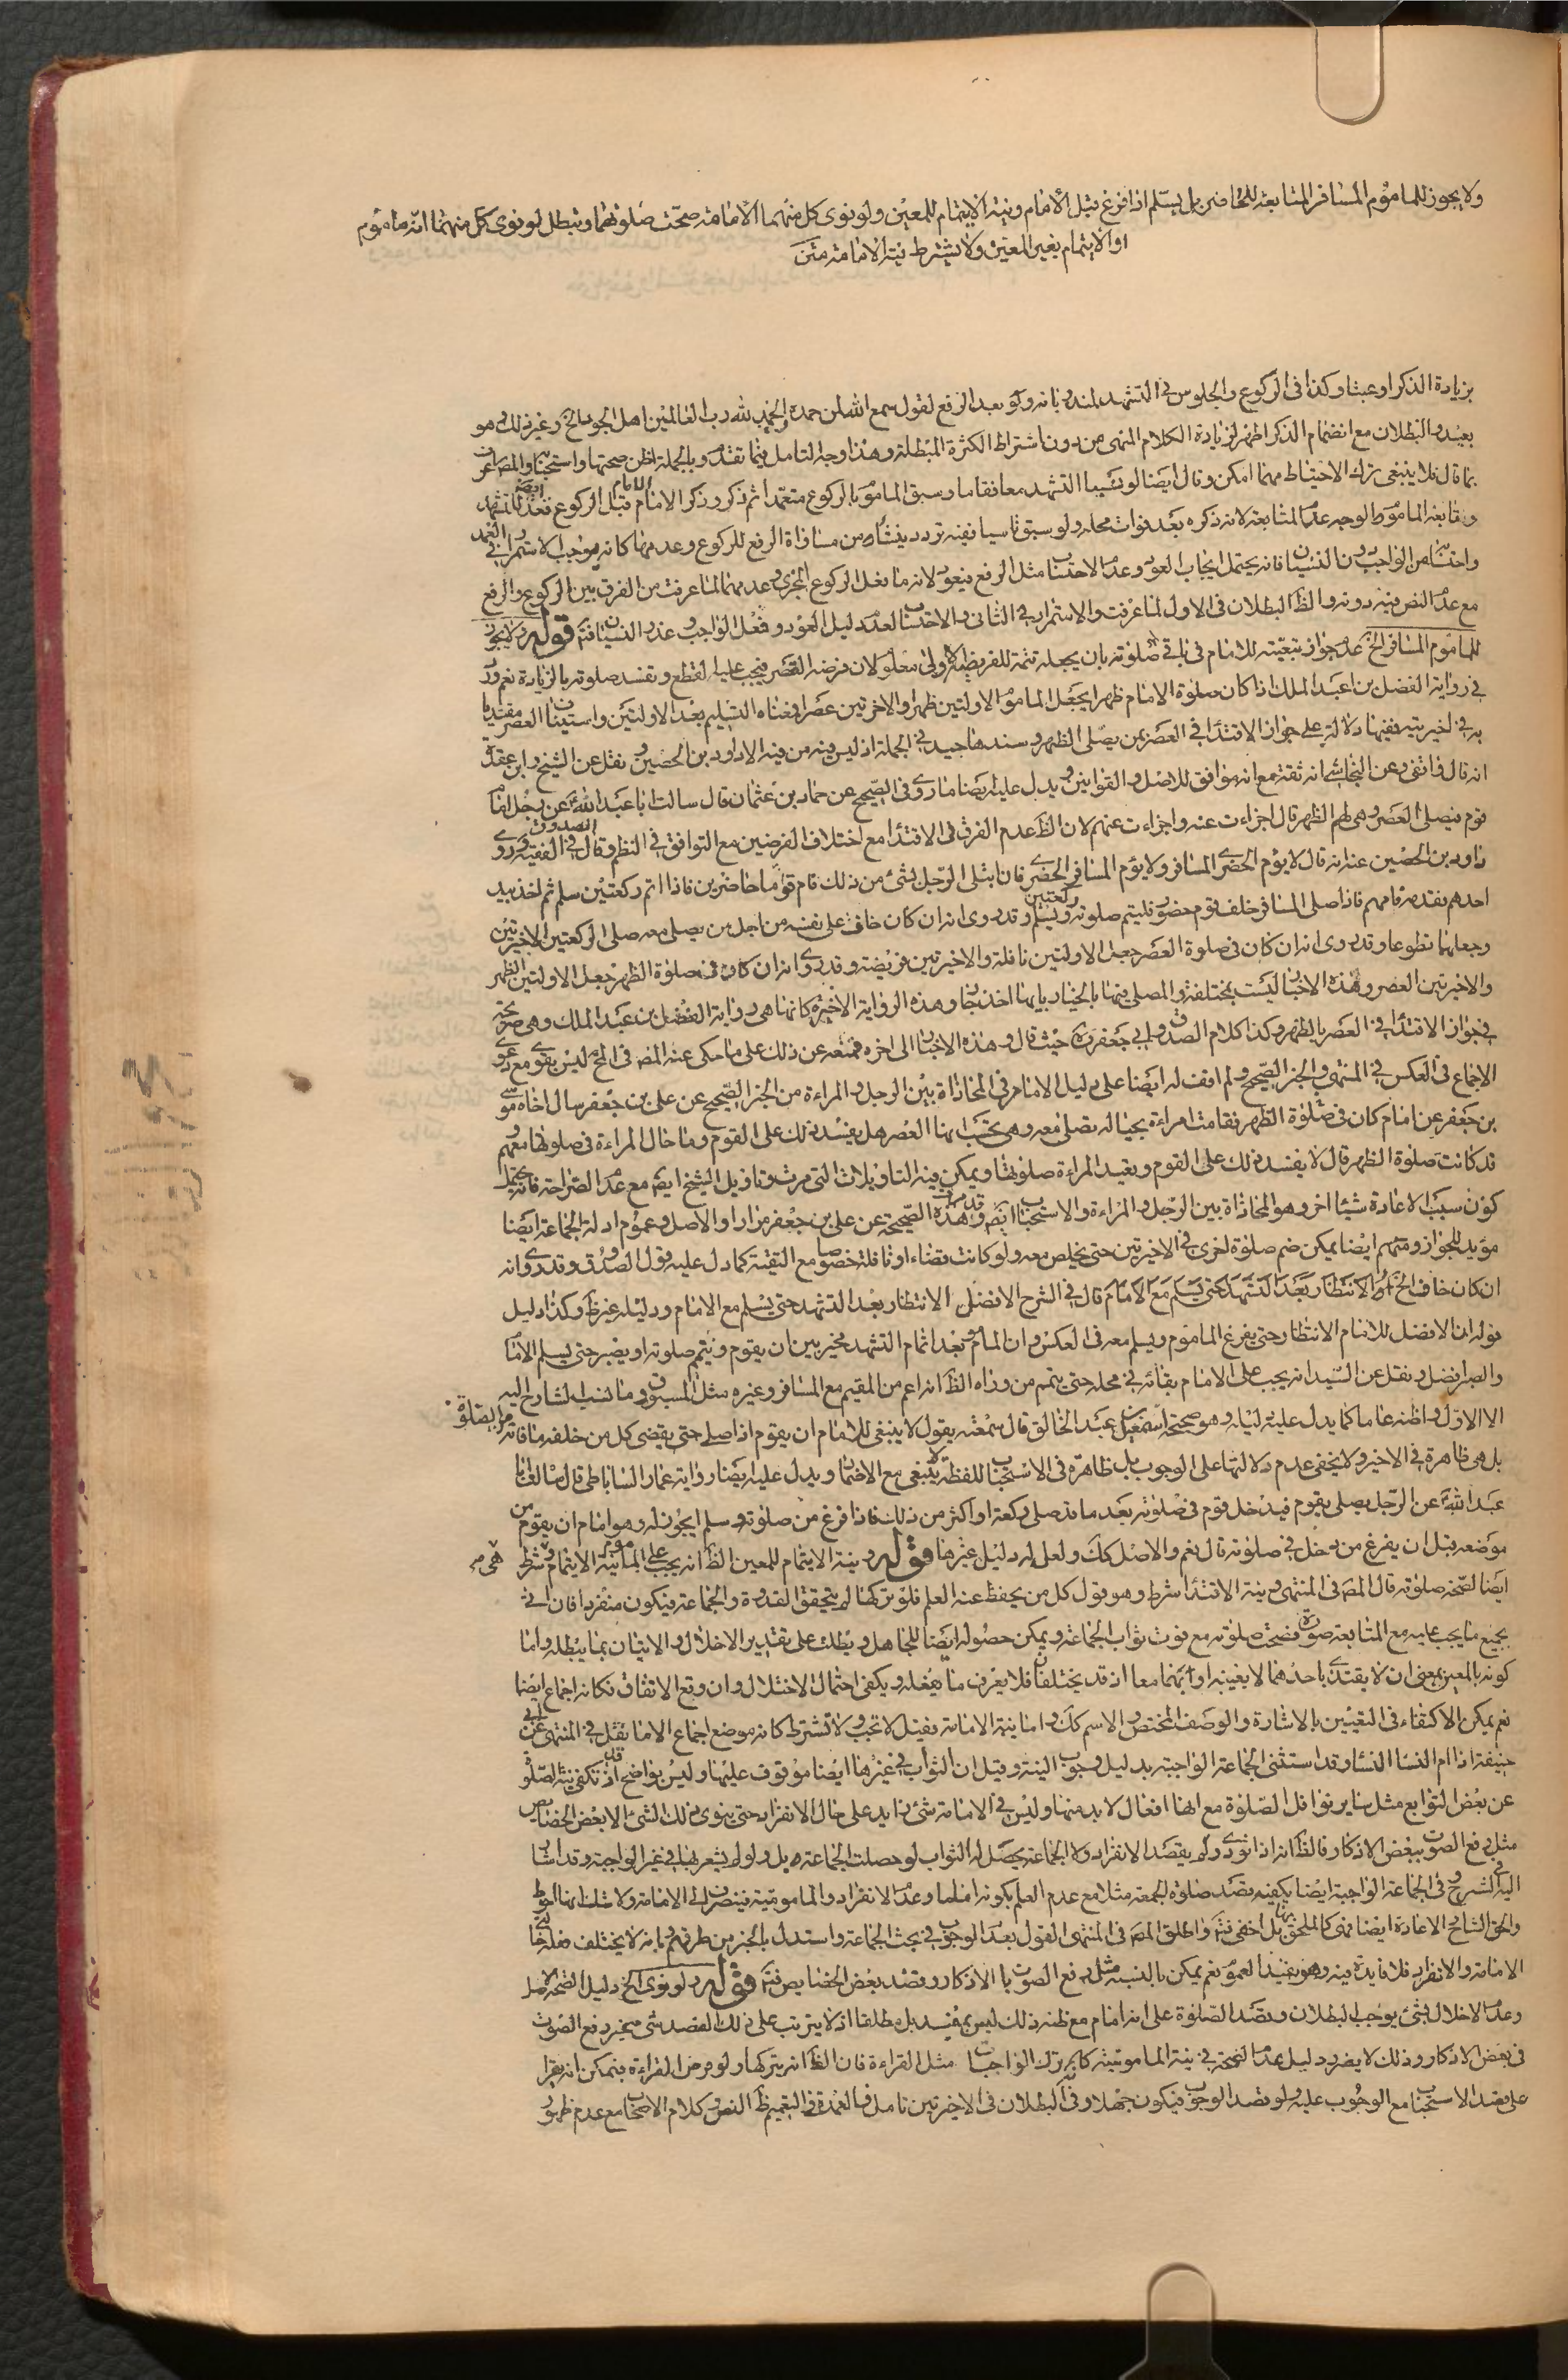 ولا يجوز للماموم المسافر المتابعة للحاضر بل يسلم اذا فرغ قبل الامام ونية الايتمام للمعين ولو نوى كل منهما الامامة صحت صلوتهما وتبطل لو نوى كل منهما انه ماموم
او الايتمام بغير المعين ولا يشترط نية الامامة متن
بزيادة الذكر او عبثا وكذا فى الركوع والجلوس فى التشهد لمندوباته ولو بعد الرفع لقول سمع الله لمن حمده والحمد لله رب العالمين اهل الجود الخ وغير ذلك وهو
بعيد والبطلان مع انضمام الذكر اظهر لزيادة الكلام المنهى من دون اشتراط الكثرة المبطلة وهذا وجه التامل فيما تقدم وبالجملة اظن صحتها واستحبابها والمص اعرف
بما قال فلا ينبغى ترك الاحتياط مهما امكن وقال ايضا لو نسيا التشهد معا فقاما وسبق الماموم بالركوع متعمدا ثم ذكر وذكر الامام قبل الركوع فقعد للتشهد
وتابعه الماموم والوجه عدم المتابعة لانه ذكره بعد فوات محله ولو سبق ناسيا ففيه تردد ينشأ من مساواة الرفع للركوع وعدمها كانه موجب الاستمرار فى العمد
واحتسابه من الواجب دون النسيان فانه يحتمل ايجاب العود وعدم الاحتساب مثل الرفع فيعود لانه ما فعل الركوع المجزى وعدمهما لما عرفت من الفرق بين الركوع والرفع
مع عدم النص فيه دونه والظ البطلان فى الاول لما عرفت والاستمرار فى الثانى والاحتساب لعدم دليل العود وفعل الواجب وعذر النسيان فتم قوله ولا يجوز
للماموم المسافر الخ عدم جواز تبعيته للامام فى باقى صلوته بان يجعله تتمة للفريضة الاولى معلوم لان فرضه القصر فيجب عليه القطع وتفسد صلوته بالزيادة نعم ورد
فى رواية الفضل بن عبد الملك اذا كان صلوة الامام ظهرا يجعل الماموم الاولتين ظهرا والاخرتين عصرا فمعناه التسليم بعد الاولتين واستيناف العصر مقتديا
به فى اخيرتيه ففيها دلالة على جواز الاقتدا فى العصر بمن يصلى الظهر وسندها جيد فى الجملة اذ ليس فيه من فيه الا داود بن الحصين ونقل عن الشيخ وابن عقدة
انه قال واقفى وعن النجاشى انه ثقة مع انه موافق للاصل والقوانين ويدل عليه ايضا ما روى فى الصحيح عن حماد بن عثمان قال سالت ابا عبد الله ع عن رجل امام
قوم فيصلى العصر وهى لهم الظهر قال اجزاءت عنه واجزاءت عنهم لان الظ عدم الفرق فى الاقتدا مع اختلاف الفرضين مع التوافق فى النظم وقال الصدوق فى الفقيه وروى
داود بن الحصين عنه انه قال لا يؤم الحضرى المسافر ولا يؤم المسافر الحضرى فان ابتلى الرجل بشئ من ذلك فام قوما حاضرين فاذا اتم ركعتين سلم ثم اخذ بيد
احدهم فقدمه فامهم فاذا صلى المسافر خلف قوم حضور فليتم صلوته ركعتين ويسلم وقد روى انه ان كان خاف على نفسه من اجل من يصلى معه صلى الركعتين الاخيرتين
وجعلهما تطوعا وقد روى انه ان كان فى صلوة العصر جعل الاولتين نافلة والاخيرتين فريضة وقد روى انه ان كان فى صلوة الظهر جعل الاولتين الظهر
والاخيرتين العصر وهذه الاخبار ليست بمختلفة والمصلى فيها بالخيار بايها اخذ جاز وهذه الرواية الاخيرة كانها هى رواية الفضل بن عبد الملك وهى صريحة
فى جواز الاقتدا فى العصر بالظهر وكذا كلام الصدوق وابى جعفر ره حيث قال وهذه الاخبار الى اخره فمنعه عن ذلك على ما حكى عنه المص فى المخ ليس بقوى مع دعوى
الاجماع فى العكس فى المنتهى والخبر الصحيح ولم اقف له ايضا على دليل الا ما مر فى المحاذاة بين الرجل والمراءة من الخبر الصحيح عن على بن جعفر سال اخاه موسى
بن جعفر عن امام كان فى صلوة الظهر فقامت امراءة بحياله تصلى معه وهى تحتسب انها العصر هل يفسد ذلك على القوم وما حال المراءة فى صلوتها معهم وقد
كانت صلوة الظهر قال لا يفسد ذلك على القوم وتعيد المراءة صلوتها ويمكن فيه التاويلات التى مرت وتاويل الشيخ ايضا مع عدم الصراحة فانه يحتمل
كون سبب الاعادة شيئا اخر وهو المحاذاة بين الرجل والمراءة والاستحباب ايضا وقد مر هذه الصحيحة عن على بن جعفر مرارا والاصل وعموم ادلة الجماعة ايضا
مؤيد للجواز ومنهم ايضا يمكن ضم صلوة اخرى فى الاخيرتين حتى يخلص معه ولو كانت قضاء او نافلة خصوصا مع التقية كما دل عليه قول الصدوق وقد روى انه
ان كان خاف الخ واما الانتظار بعد التشهد حتى يسلم مع الامام قال فى الشرح الافضل الانتظار بعد التشهد حتى يسلم مع الامام ودليله غير ظ وكذا دليل
قوله ان الافضل للامام الانتظار حتى يفرغ الماموم ويسلم معه فى العكس وان الماموم بعد اتمام التشهد مخير بين ان يقوم ويتم صلوته او يصبر حتى يسلم الامام
والصبر افضل ونقل عن السيد انه يجب على الامام بقائه فى محله حتى يتم من وراه الظ انه اعم من المقيم مع المسافر وغيره مثل المسبوق وما نسب الشارح اليه
الا الاول واظنه عاما كما يدل عليه دليله وهو صحيحة اسمعيل بن عبد الخالق قال سمعته يقول لا ينبغى للامام ان يقوم اذا صلى حتى يقضى كل من خلفه ما فاته من الصلوة
بل هى ظاهرة فى الاخير ولا يخفى عدم دلالتها على الوجوب بل ظاهرة فى الاستحباب للفظة لا ينبغى مع الاضمار ويدل عليه ايضا رواية عمار الساباطى قال سالت ابا
عبد الله ع عن الرجل يصلى بقوم فيدخل قوم فى صلوته بعد ما قد صلى ركعة او اكثر من ذلك فاذا فرغ من صلوته وسلم ايجوز له وهو امام ان يقوم من
موضعه قبل ان يفرغ من دخل فى صلوته قال نعم والاصل كك ولعل له دليل غيرها قوله ونية الايتمام للمعين الظ انه يجب على الماموم نية الايتمام وهى شرط
ايضا لصحة صلوته قال المص فى المنتهى ونية الاقتدا شرط وهو قول كل من يحفظ عنه العلم فلو تركها لم يتحقق القدوة والجماعة فيكون منفردا فان اتى
بجميع ما يجب عليه مع المتابعة صورة فصحت صلوته مع فوت ثواب الجماعة ويمكن حصوله ايضا للجاهل وبطلت على تقدير الاخلال والاتيان بما يبطله واما
كونه بالمعين بمعنى ان لا يقتدى باحدهما لا بعينه او بهما معا اذ قد يختلفان فلا يعرف ما يفعله ويكفى احتمال الاختلال وان وقع الاتفاق فكانه اجماع ايضا
نعم يمكن الاكتفاء فى التعيين بالاشارة والوصف المختص والاسم كك واما نية الامامة فقيل لا تجب ولا تشترط كانه موضع اجماع الا ما نقل فى المنتهى عن ابى
حنيفة اذا ام النساء وقد استثنى الجماعة الواجبة بدليل وجوب النية وقيل ان الثواب فى غيرها ايضا موقوف عليها وليس بواضح اذ قد تكفى نية الصلوة
عن بعض التوابع مثل ساير نوافل الصلوة مع انها افعال لا بد منها وليس فى الامامة شئ زايد على حال الانفراد حتى ينوى ذلك الشئ الا بعض الخصايص
مثل رفع الصوت ببعض الاذكار فالظ انه اذا نوى ولم يقصد الانفراد ولا الجماعة يحصل له الثواب لو حصلت الجماعة به بل ولو لم يشعر بها فى غير الواجبة وقد اشار
اليه فى الشرح وفى الجماعة الواجبة ايضا يكفيه قصد صلوة الجمعة مثلا مع عدم العلم بكونه اماما وعدم الانفراد والمامومية فينصرف الى الامامة ولا شك انها احوط
والحق الشارح الاعادة ايضا فهى كالملحق بها بل اخفى فتم واطلق المص فى المنتهى القول بعدم الوجوب فى بحث الجماعة واستدل بالخبر من طرقهم وبانه لا يختلف فعله حالتى
الامامة والانفراد فلا فايدة فيه وهو يفيد العموم نعم يمكن بالنسبة مثل رفع الصوت بالاذكار وقصد بعض الخصايص فتم قوله ولو نوى الخ دليل الصحة الاصل
وعدم الاخلال بشئ يوجب البطلان وقصد الصلوة على انه امام مع ظنه ذلك ليس بمفسد بل مطلقا اذ لا يترتب على ذلك القصد شئ بمجرد رفع الصوت
فى بعض الاذكار وذلك لا يضر ودليل عدم الصحة فى نية المامومية كانه ترك الواجبات مثل القراءة فان الظ انه يتركها ولو فرض القراءة فيمكن انه يقرا
على قصد الاستحباب مع الوجوب عليه ولو قصد الوجوب فيكون جهلا وفى البطلان فى الاخيرتين تامل فالعمدة فى التعميم ظ النص وكلام الاصحاب مع عدم ظهور